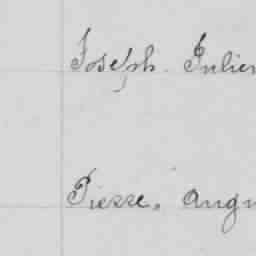 Joseph Julien
Pierre, Augu